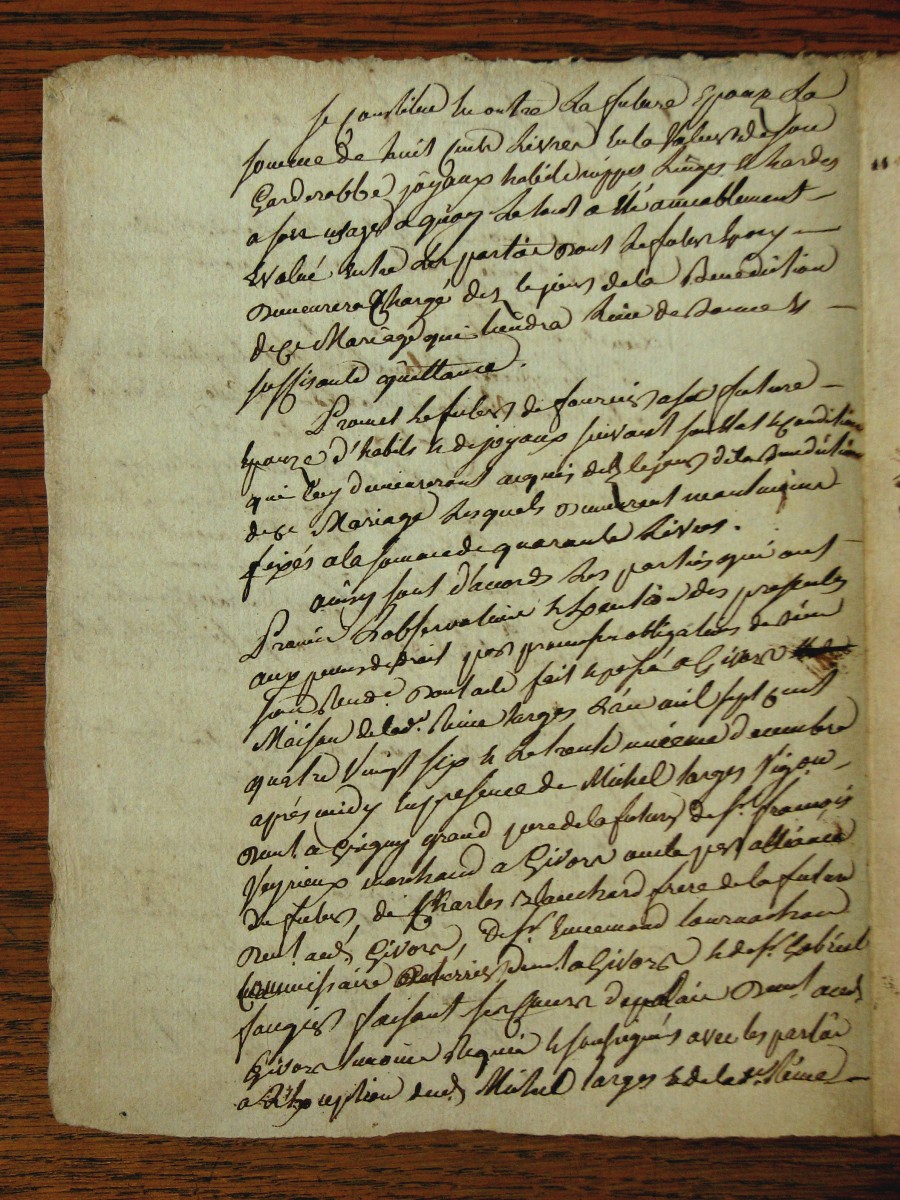 se constitue en outre la future Epouze la
somme de huit cents Livres En la valeur de son
Garderobbe, joyaux habits nippes linges & hardes
a son usage a quoy le tout a été amiablement
Evalué entre les parties dont le futur Epoux
demeurera chargé dez le jour de la Benediction
de ce Mariage qui tiendra lieu de bonne &
suffisante quittance.
Promet le futur de fournir a sa future
Epouze d'habits & de joyaux suivant son etat & condition
qui luy demeureront acquis dez le jour de la Benediction
de ce Mariage lesquels demeurent neantmoins
fixés a la somme de quarante Livres.
Ainsy sont d'accord les parties qui ont
Promis l'observation & Execution des presentes
aux peines de droit par promesse obligation de biens
soum. renon.
Maison de lad. Reine targes L'an mil sept cent
quatre Vingt six & le trente unieme decembre
aprés midy En presence de Michel targes Vigneron
demt. a Grigny grand pere de la future, de Sr. françois
Veyrieux marchand a Givors oncle par alliance
du futur, de Charles Blanchard frere de la future
demt. aud. Givors, de Sr. Ennemond tournachon
Commissaire a terrier demt. a Givors & de Sr. Gabriel
faugier faisant demt. aud.
Givors temoins requis & soussignés avec les parties
a L'Exception dud. Michel targes & de lad. Reine